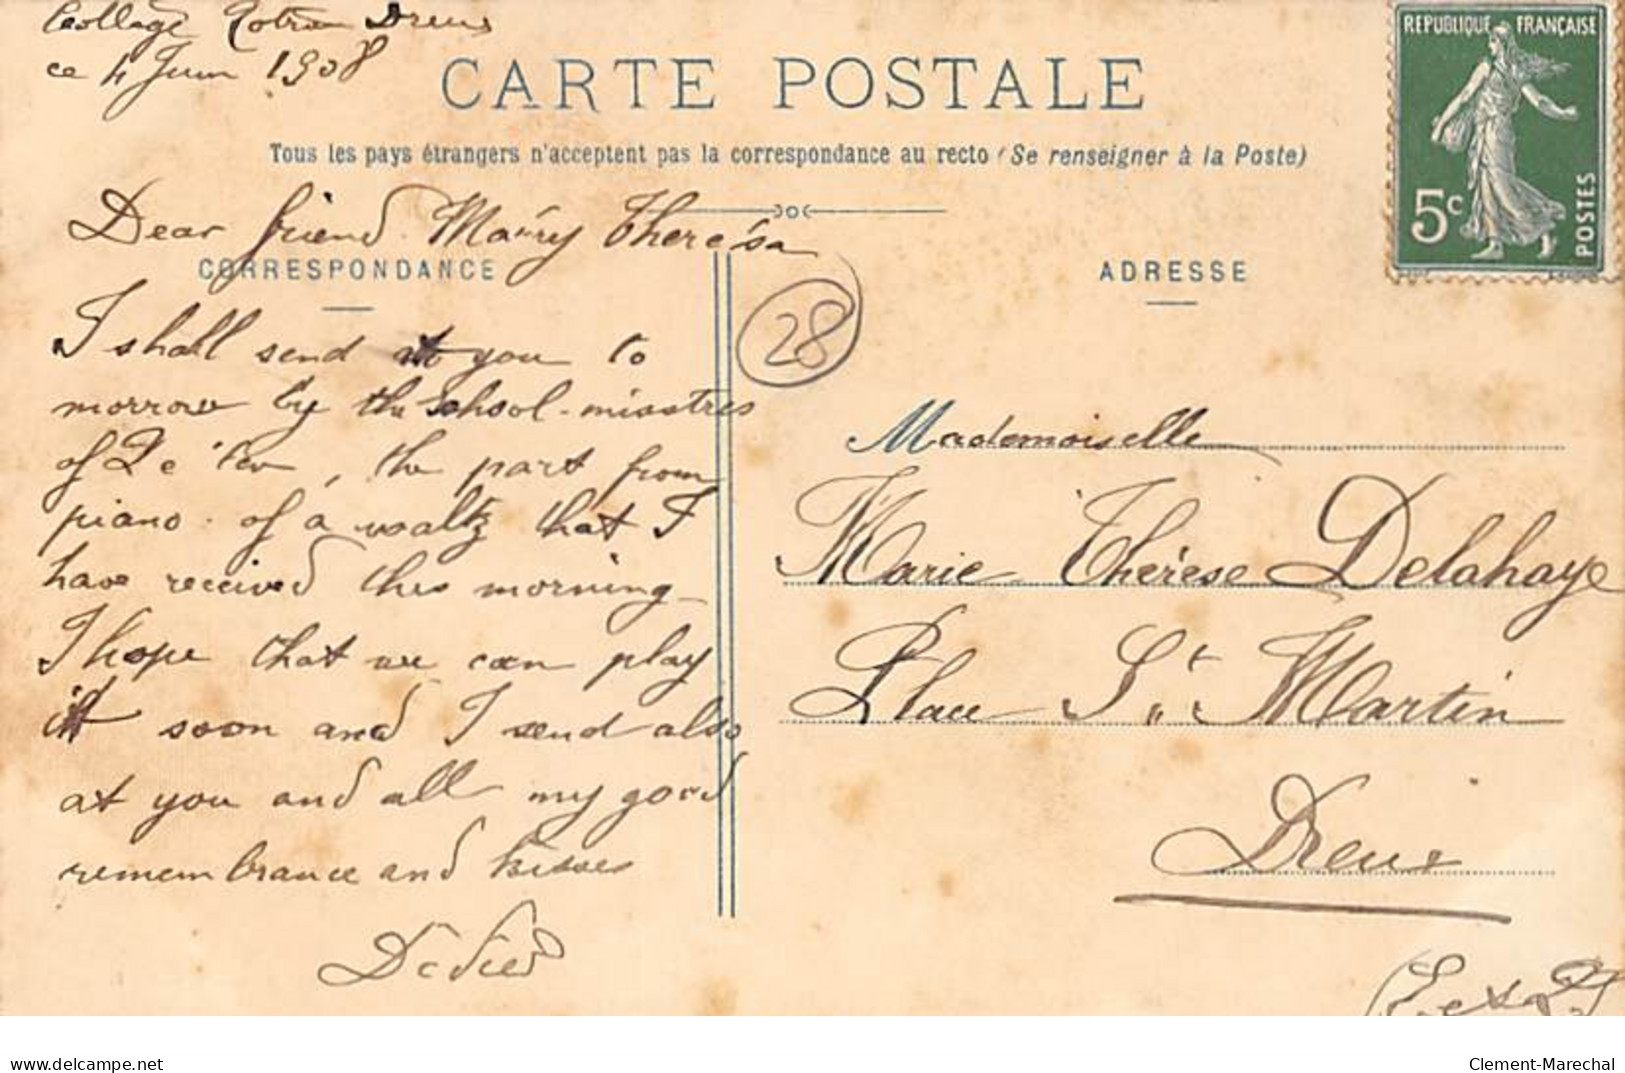 Collage Rotrou Dreux
ce 4 Juin 1908
CARTE POSTALE
REPUBLIQUE FRANÇAISE
5c
POSTES
Tous les pays étrangers n'acceptent pas la correspondance au recto (Se renseigner à la Poste)
CORRESPONDANCE
ADRESSE
Dear friend Maüry Therésa
I shall send to you to
morrow by the School-misstres
of, the part from
piano of a waltz that I
have received this morning
I hope that we can play
it soon and I send also
at you and all my good
remembrance and kisses
28
Mademoiselle
Marie Thérèse Delahaye
Place St Martin
Dreux
(E et L)
www.delcampe.net
Clement-Marechal